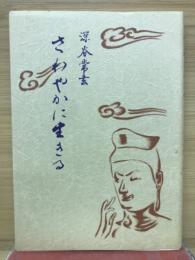 深奈常玄
さわやかに生きる